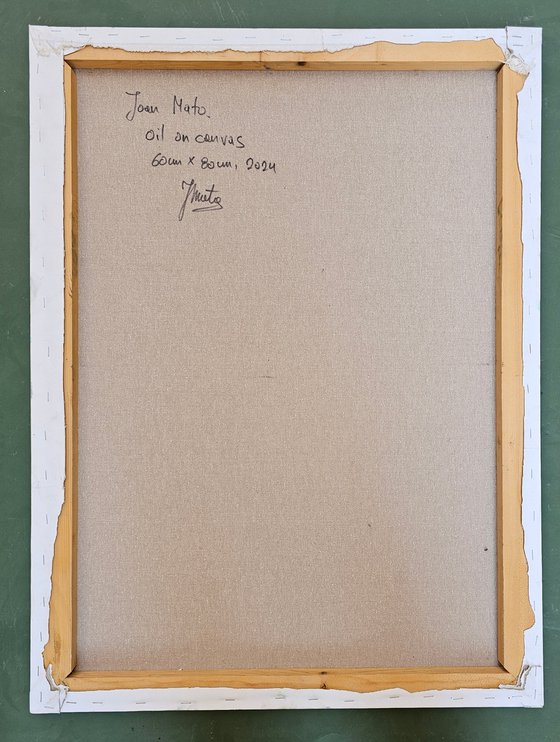 Joan Mato.
oil on canvas
60cm x 80cm, 2024
JMato